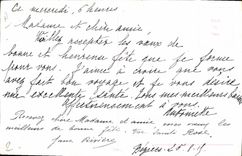 Ce mercredi, 6 heures
Madame et chère amie,
Veuillez accepter les vœux de
bonne et heureuse fête que je forme
pour vous. J'aime à croire que vous
avez fait bon voyage et je vous désire
une excellente santé. Tous mes meilleurs
Affectueusement à vous.
Antoinette
Recevez chère Madame et amie mes vœux les
meilleurs de bonne fête. Vve Sainte Rose
Jane Rivière
Béziers